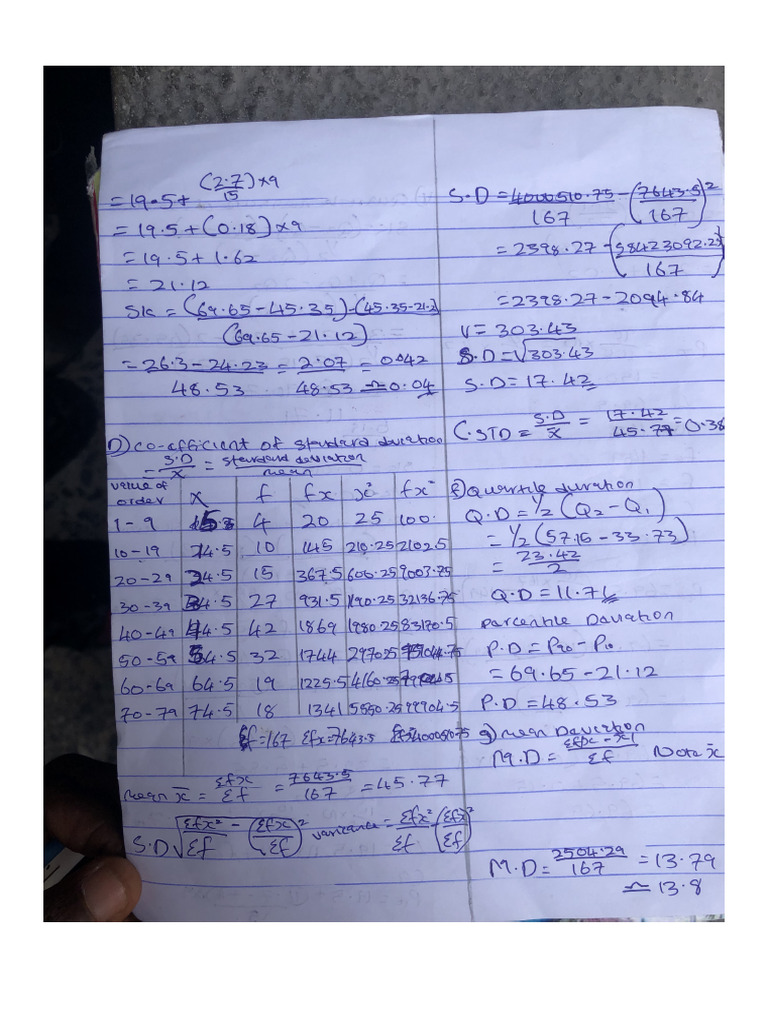 = 19.5 + (2.7)/15 × 9
= 19.5 + (0.18) × 9
= 19.5 + 1.62
= 21.12
Sk = (69.65 - 45.35) - (45.35 - 21.2
(69.65 - 21.12)
= 26.3 - 24.23 = 2.07 = 0.042
48.53 48.53 ≃ 0.04
D) co-efficient of standard deviation
= S.D/x = standard deviation/mean
value of order | x | f | fx | x² | fx²
1-9 | 5 | 4 | 20 | 25 | 100
10-19 | 14.5 | 10 | 145 | 210.25 | 2102.5
20-29 | 24.5 | 15 | 367.5 | 600.25 | 9003.75
30-39 | 34.5 | 27 | 931.5 | 1190.25 | 32136.75
40-49 | 44.5 | 42 | 1869 | 1980.25 | 83170.5
50-59 | 54.5 | 32 | 1744 | 297025
60-69 | 64.5 | 19 | 1225.5 | 4160.25
70-79 | 74.5 | 18 | 1341 | 5550.25 | 99904.5
Σf = 167 Σfx = 7643.5
mean x̄ = Σfx/Σf = 7643.5/167 = 45.77
S.D √ Σfx²/Σf - (Σfx/Σf)² variance = Σfx²/Σf - (Σfx/Σf)²
S.D = 400510.75/167 - (7643.5/167)²
= 2398.27 - (58423092.25/167)
= 2398.27 - 2094.84
V = 303.43
S.D = √303.43
S.D = 17.42
C.STD = S.D/x = 17.42/45.77 = 0.38
f) Quartile duration
Q.D = ½ (Q₂ - Q₁)
= ½ (57.15 - 33.73)
= 23.42/2
Q.D = 11.71
Percentile Daviation
P.D = P90 - P10
= 69.65 - 21.12
P.D = 48.53
g) mean Deviation
M.D = Σf|x - x̄|/Σf Note x̄
M.D = 2504.29/167 = 13.79
≃ 13.8